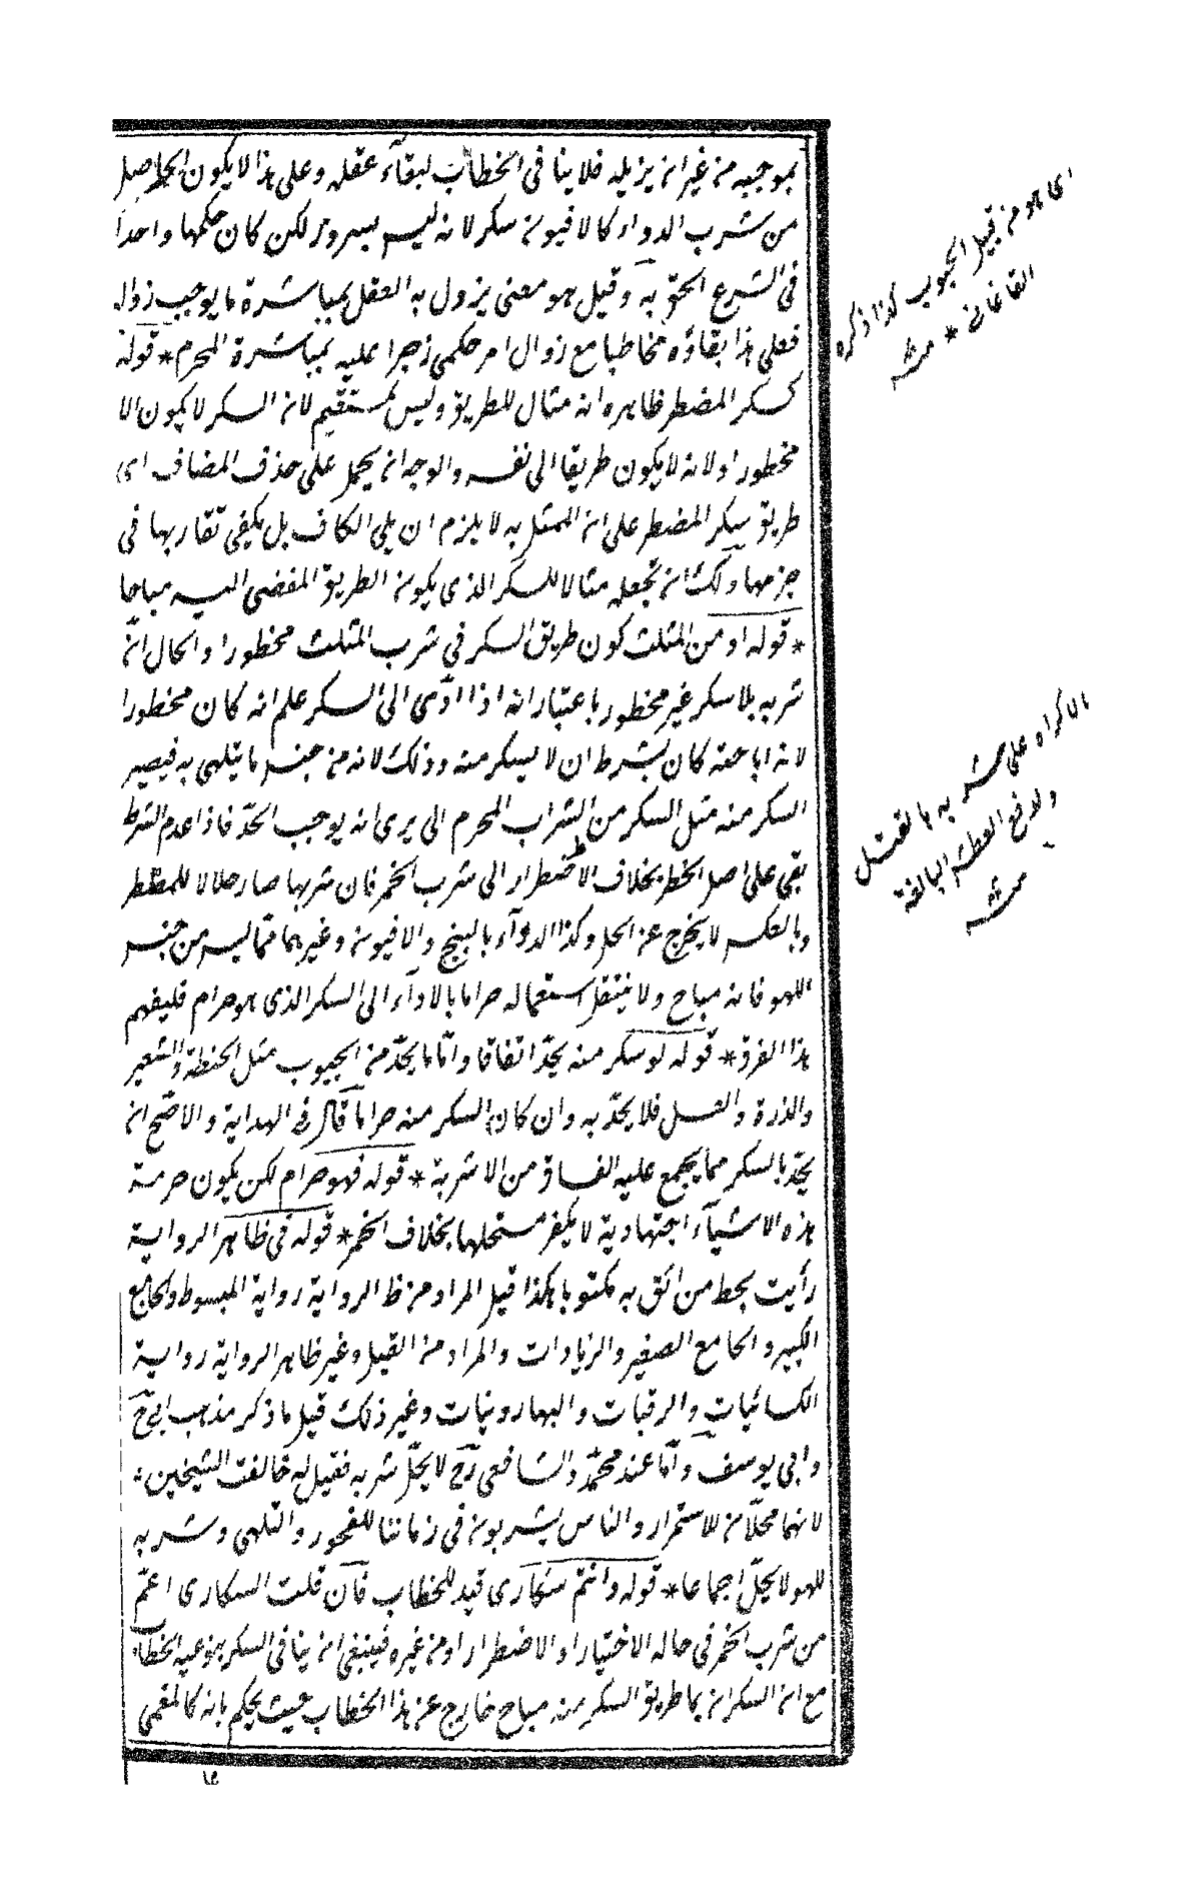 بموجبه من غير ان يزيله فلا ينافى الخطاب لبقاء عقله وعلى هذا لا يكون الحاصل
من شرب الدواء كالافيون سكر لانه ليس بسرور لكن كان حكمها واحدا
فى الشرع الحق به وقيل هو معنى يزول به العقل بمباشرة ما يوجب زواله
فعلى هذا بقاؤه مخاطبا مع زوال امر حكمى زجرا عليه بمباشرة المحرم * قوله
كسكر المضطر ظاهره انه مثال للطريق وليس بمستقيم لان السكر لا يكون الا
محظورا ولانه لا يكون طريقا الى نفسه والوجه ان يحمل على حذف المضاف اى
طريق سكر المضطر على ان الممثل به لا يلزم ان يلى الكاف بل يكفى تقاربها فى
حزمها ولك ان تجعله مثالا للسكر الذى يكون الطريق المفضى اليه مباحا
* قوله او من المثلث كون طريق السكر فى شرب المثلث محظورا والحال ان
شربه بلا سكر غير محظور باعتبار انه اذا ادّى الى السكر علم انه كان محظورا
لانه اباحته كان بشرط ان لا يسكر منه وذلك لانه من جنس ما يتلهى به فيصير
السكر منه مثل السكر من الشراب المحرم الى يرى انه يوجب الحدّ فاذا عدم الشرط
بقى على اصل الحظر بخلاف الاضطرار الى شرب الخمر فان شربها صار حلالا للمضطر
وبالعكس لا يخرج عن الحل وكذا الدوآء بالبنج والافيون وغيرهما مما ليس من جنس
اللهو فانه مباح ولا ينتقل استعماله حراما بالادآء الى السكر الذى هو حرام فليفهم
هذا الفرق * قوله لو سكر منه يحدّ اتفاقا وامّا ما يتخذ من الحبوب مثل الحنطة والشعير
والذرة والعسل فلا يحدّ به وان كان السكر منه حراما قال فى الهداية والاصح ان
يحدّ بالسكر مما يجمع عليه الفساق من الاشربة * قوله فهو حرام لكن يكون حرمة
هذه الاشيآء اجتهادية لا يكفر مستحلها بخلاف الخمر * قوله فى ظاهر الرواية
رأيت بخط من اثق به مكتوبا هكذا قيل المراد من ظ الرواية رواية المبسوط والجامع
الكبير والجامع الصغير والزيادات والمراد من القيل وغير ظاهر الرواية رواية
الكسائيات والرقيات والهارونيات وغير ذلك قيل ما ذكر مذهب ابى ح
وابى يوسف وامّا عند محمّد والشافعى رح لا يحلّ شربه فقيل له خالفت الشيخين
لانهما محلّان للاستمرار والناس يشربون فى زماننا للفجور والتلهى وشربه
للهو لا يحلّ اجماعا * قوله وانتم سكارى قيد للخطاب فان قلت السكارى اعمّ
من شرب الخمر فى حالة الاختيار او الاضطرار او من غيره فينبغى ان ينافى السكر بنوعيه الخطاب
مع ان السكران بما طريق السكر منه مباح خارج عن هذا الخطاب حيث يحكم بانه كالمغمى
اى هو من قبيل الحبوب كذا ذكره
القاغانى * منه
بالاكراه على شربه بالقتل
ولدفع العطش البالغة
منه